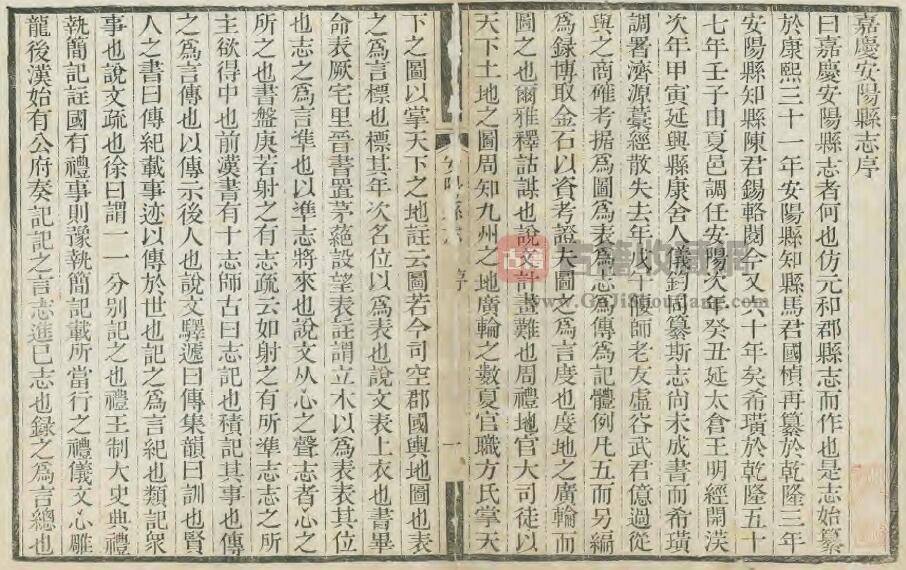 嘉慶安陽縣志序
曰嘉慶安陽縣志者何也仿元和郡縣志而作也是志始纂
於康熙三十一年安陽縣知縣馬君國楨再纂於乾隆三年
安陽縣知縣陳君錫輅閱今又六十年矣希璜於乾隆五十
七年壬子由夏邑調任安陽次年癸丑延太倉王明經開沃
次年甲寅延興縣康舍人儀鈞同纂斯志尚未成書而希璜
調署濟源藁經散失去年戊午偃師老友虛谷武君億過從
與之商確考据爲圖爲表爲志爲傳爲記體例凡五而另編
爲錄博取金石以資考證夫圖之爲言度也度地之廣輪而
圖之也爾雅釋詁謀也說文計畫難也周禮地官大司徒以
天下土地之圖周知九州之地廣輪之數夏官職方氏掌天
安陽縣志
序
一
下之圖以掌天下之地註云圖若今司空郡國輿地圖也表
之爲言標也標其年次名位以爲表也說文表上衣也書畢
命表厥宅里晉書置茅蕝設望表註謂立木以爲表表其位
也志之爲言準也以準志將來也說文从心之聲志者心之
所之也書盤庚若射之有志疏云如射之有所準志志之所
主欲得中也前漢書有十志師古曰志記也積記其事也傳
之爲言傳也以傳示後人也說文驛遞曰傳集韻曰訓也賢
人之書曰傳紀載事迹以傳於世也記之爲言紀也類記衆
事也說文疏也徐曰謂一一分別記之也禮王制大史典禮
執簡記註國有禮事則豫執簡記載所當行之禮儀文心雕
龍後漢始有公府奏記記之言志進巳志也錄之爲言總也
古籍收藏網
www.GuJiShouCang.com